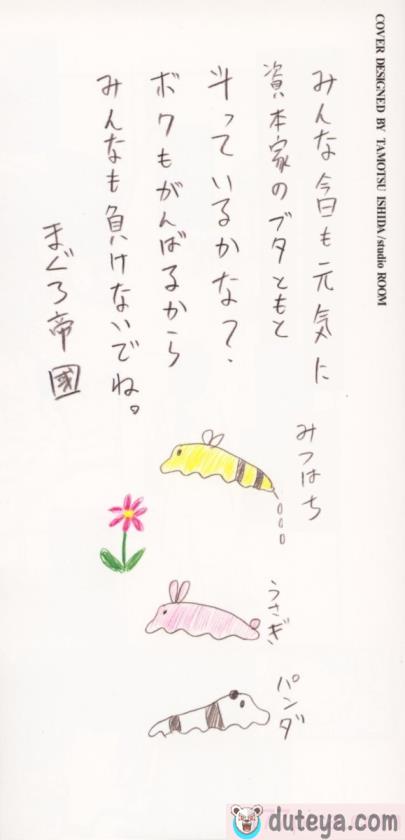 COVER DESIGNED BY TAMOTSU ISHIDA/studio ROOM
みんな今日も元気に
資本家のブタともと
斗っているかな?、
ボクもがんばるから
みんなも負けないでね。
まぐろ帝國
みつはち
うさぎ
パンダ
duteya.com